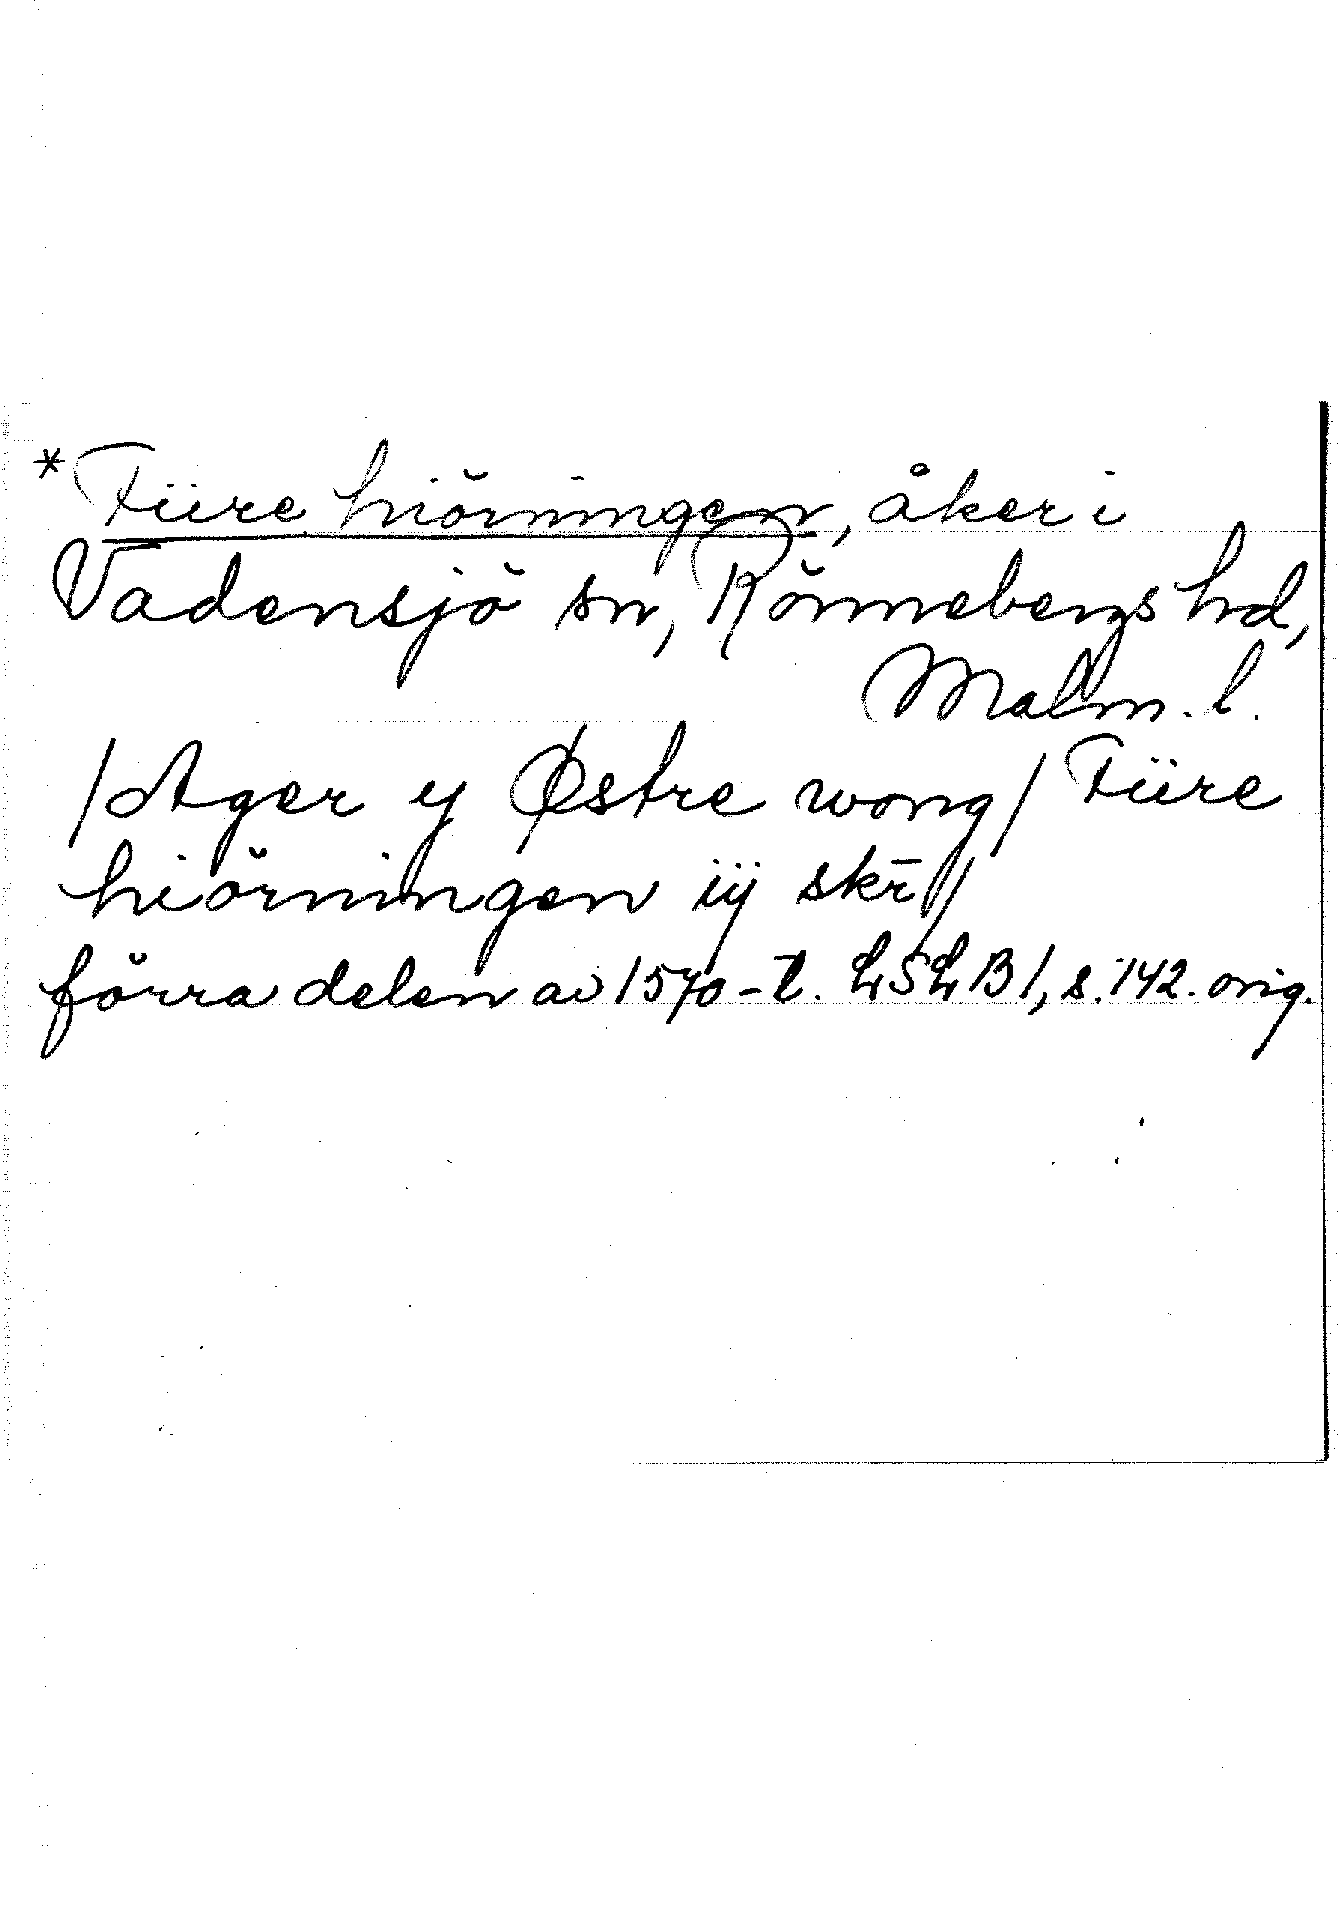 *Fiire hiörningen, åker i
Vadensjö sn, Rönnebergs hd,
Malm. l.
/Ager y Østre wong/ Fiire
hiörningen iij skr̄//
förra delen av 1570-t. LSLB1, s. 142. orig.